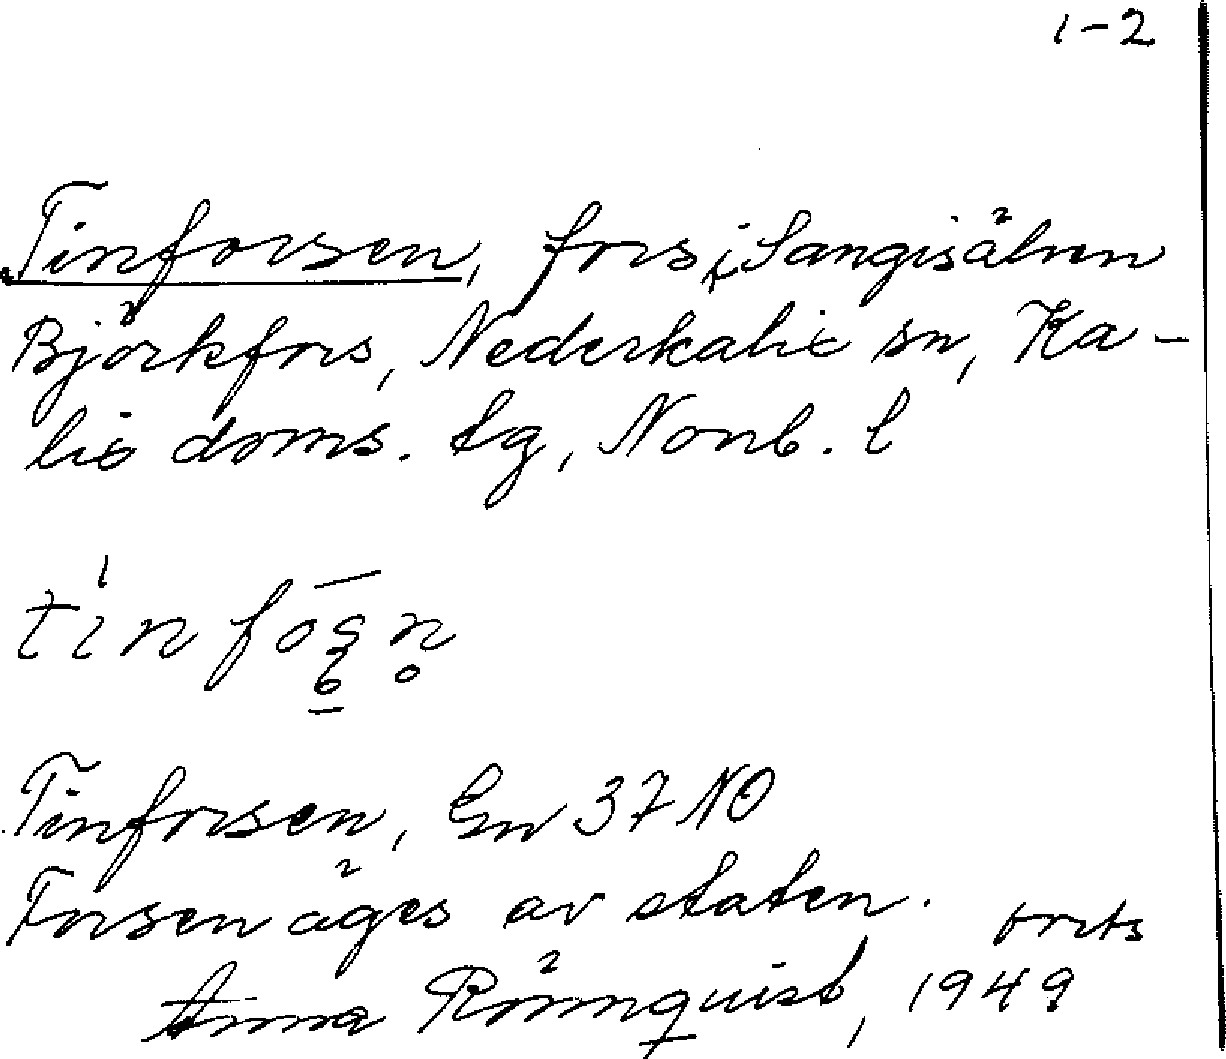 1-2
Tinforsen, fors i Sangisälven
Björkfors, Nederkalix sn, Ka-
lix doms. tg, Norrb. l
Tinforsen, Gn 37 NO
Forsen äges av staten. forts
Anna Rönnquist, 1949